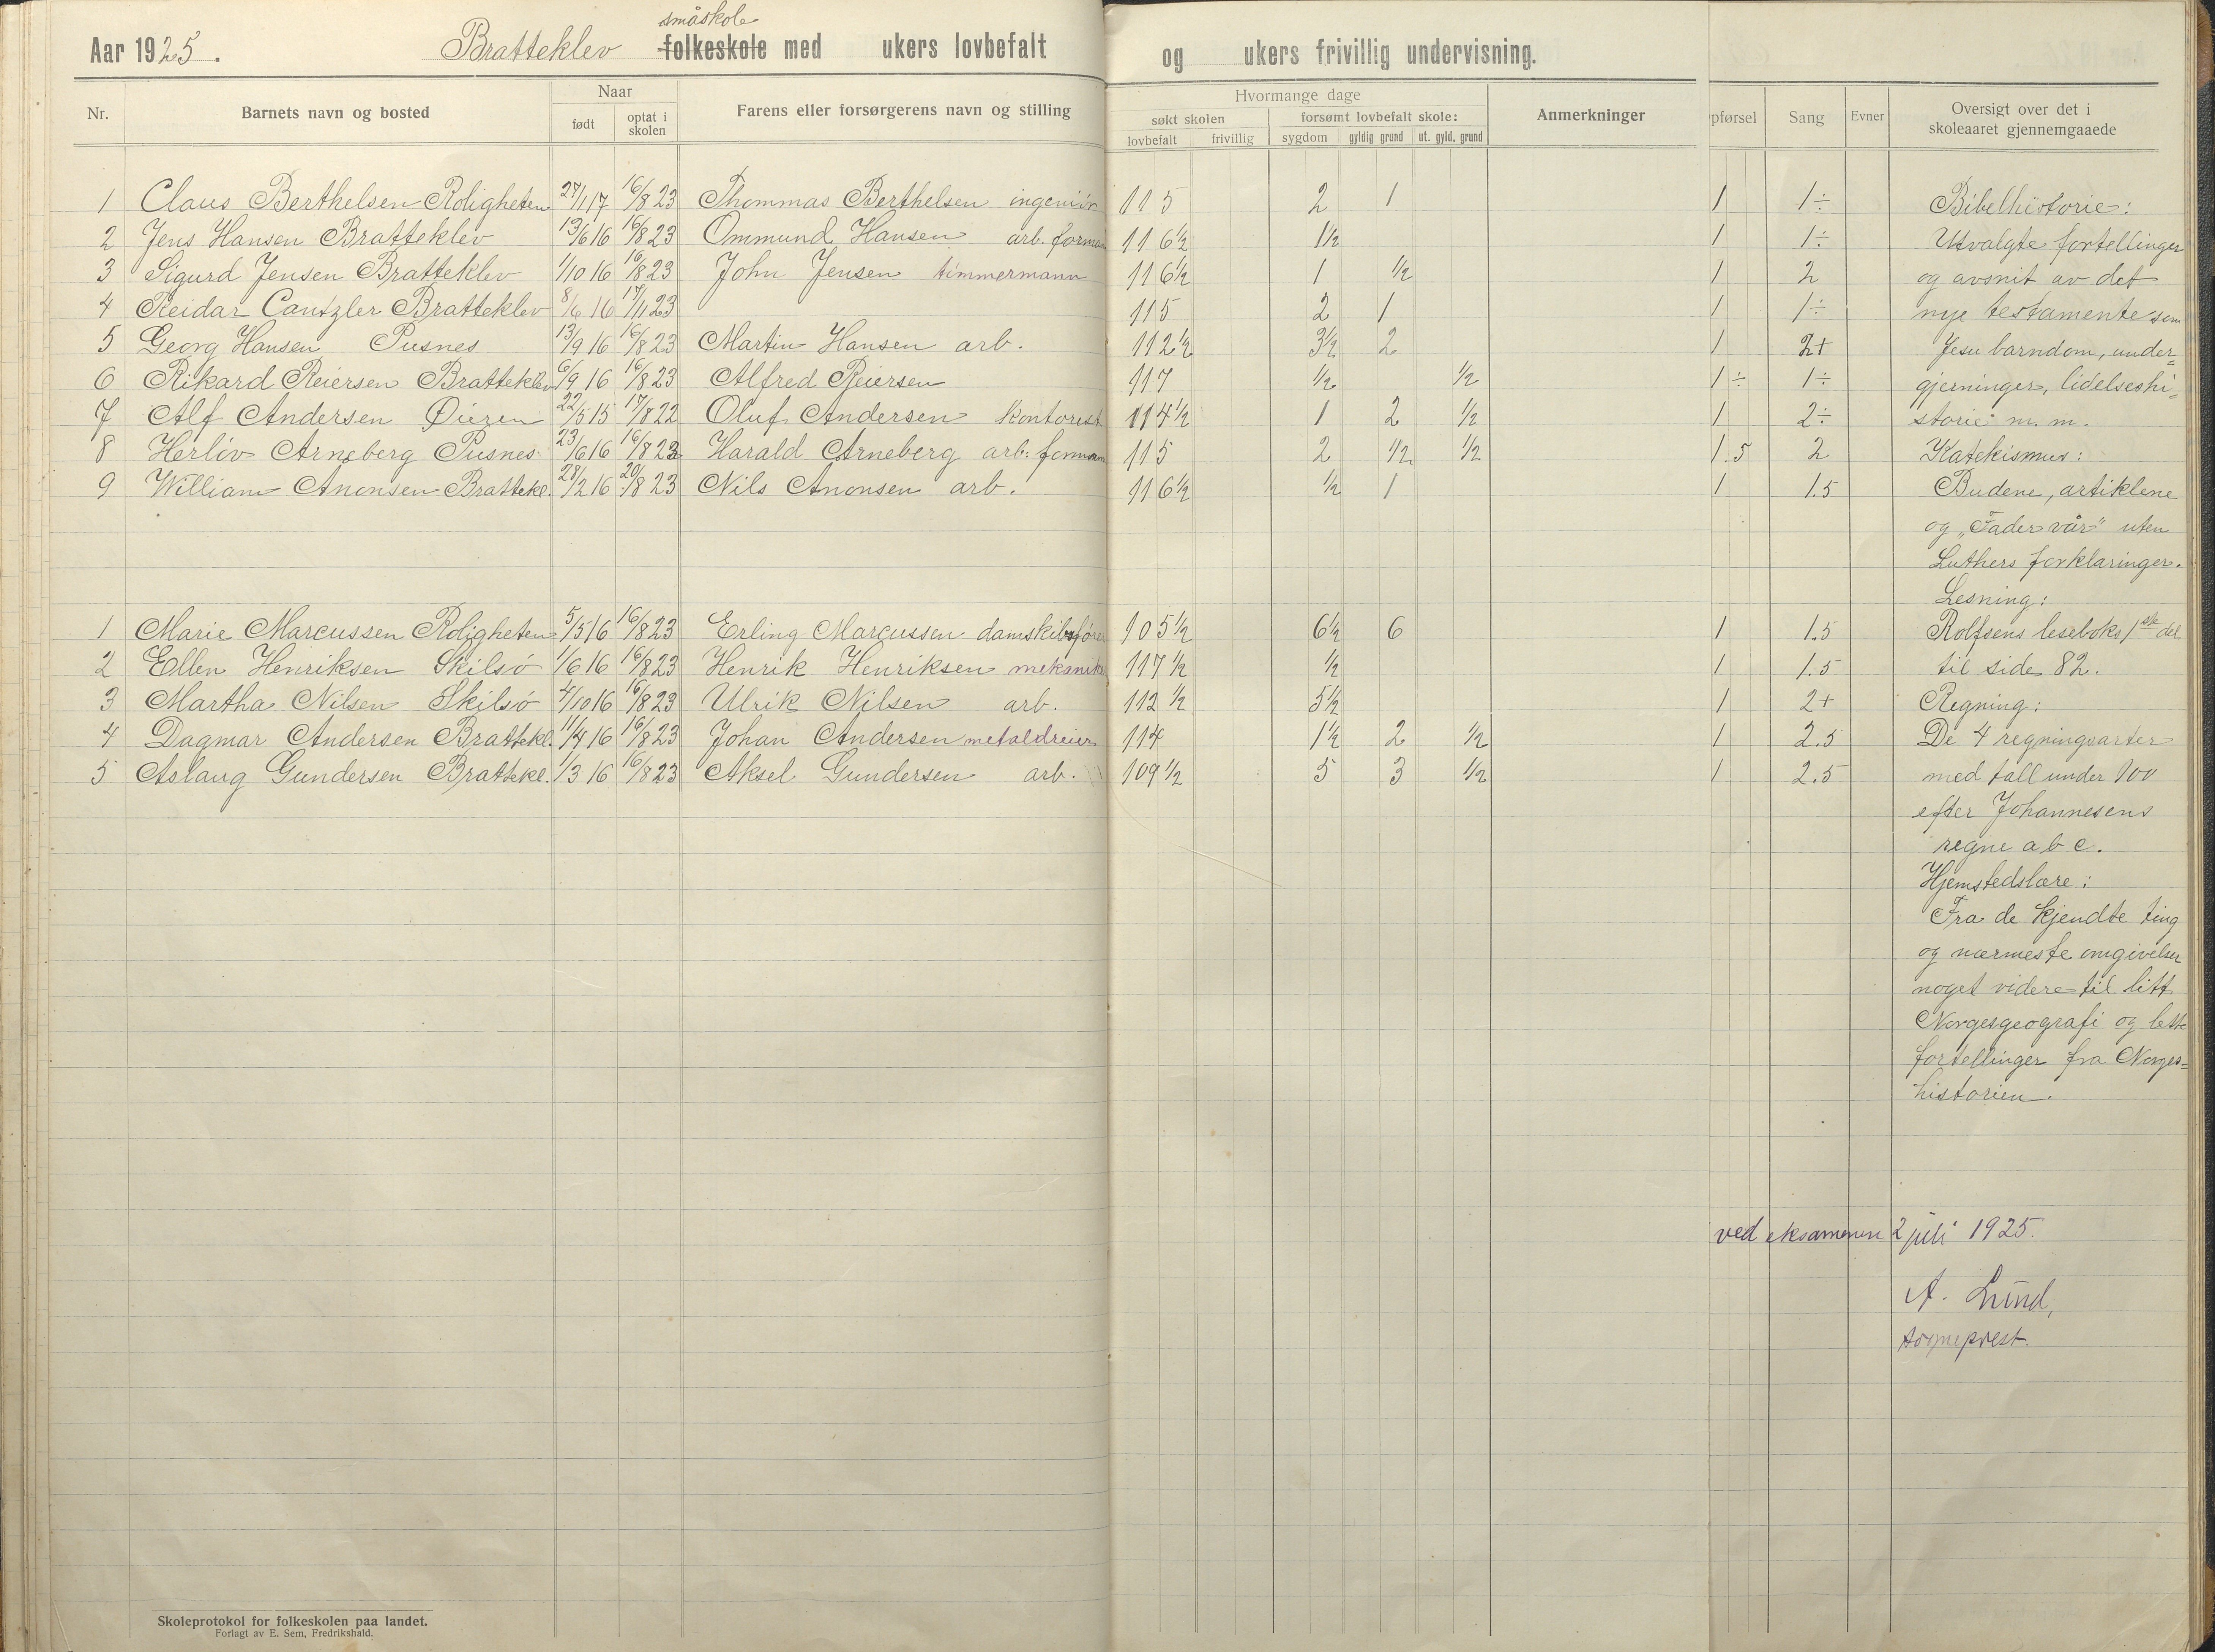 småskole
Aar 1925. Bratteklev folkeskole med ukers lovbefalt og ukers frivillig undervisning.
Nr. Barnets navn og bosted Naar født optat i skolen Farens eller forsørgerens navn og stilling Hvormange dage søkt skolen lovbefalt frivillig forsømt lovbefalt skole: sygdom gyldig grund ut. gyld. grund Anmerkninger pførsel Sang Evner Oversigt over det i skoleaaret gjennemgaaede
1 Claus Berthelsen Roligheten 27/1 17 16/8 23 Thommas Berthelsen ingeniör 115 2 1 1 1÷
2 Jens Hansen Bratteklev 13/6 16 16/8 23 Ommund Hansen arb. forman 116½ 1½ 1 1÷
3 Sigurd Jensen Bratteklev 1/10 16 16/8 23 John Jensen timmermann 116½ 1 ½ 1 2
4 Reidar Cantzler Bratteklev 8/6 16 17/11 23 115 2 1 1 1÷
5 Georg Hansen Pusnes 13/9 16 16/8 23 Martin Hansen arb. 112½ 3½ 2 1 2+
6 Rikard Reiersen Bratteklev 6/9 16 16/8 23 Alfred Reiersen 117 ½ ½ 1÷ 1÷
7 Alf Andersen Öiezen 22/5 15 17/8 22 Oluf Andersen Kontorist 114½ 1 2 ½ 1 2÷
8 Herlöv Arneberg Pusnes 23/6 16 16/8 23 Harald Arneberg arb. formann 115 2 ½ ½ 1.5 2
9 William Anonsen Brattekl. 28/2 16 20/8 23 Nils Anonsen arb. 116½ ½ 1 1 1.5
1 Marie Marcussen Roligheten 5/5 16 16/8 23 Erling Marcussen damskibsförer 105½ 6½ 6 1 1.5
2 Ellen Henriksen Skilsö 1/6 16 16/8 23 Henrik Henriksen mekanike 117½ ½ 1 1.5
3 Martha Nilsen Skilsö 4/10 16 16/8 23 Ulrik Nilsen arb. 112½ 5½ 1 2+
4 Dagmar Andersen Brattekl. 11/4 16 16/8 23 Johan Andersen metaldreier 114 1½ 2 ½ 1 2.5
5 Aslaug Gundersen Brattekl. 1/3 16 16/8 23 Aksel Gundersen arb. 109½ 5 3 ½ 1 2.5
Bibelhistorie:
Utvalgte fortellinger
og avsnit av det
nye testamente som
Jesu barndom, under-
gjerninger, lidelseshi-
storie m. m.
Katekismus:
Budene, artiklene
og „Fader vår" uten
Luthers forklaringer.
Lesning:
Rolfsens leseboks 1ste del
til side 82.
Regning:
De 4 regningsarter
med tall under 100
efter Johannesens
regne a b c.
Hjemstedslære:
Fra de kjendte ting
og nærmeste omgivelser
noget videre til litt
Norgesgeografi og lette
fortellinger fra Norges-
historien.
ved eksamenen 2 juli 1925.
A. Lund,
sogneprest.
Skoleprotokol for folkeskolen paa landet.
Forlagt av E. Sem, Fredrikshald.